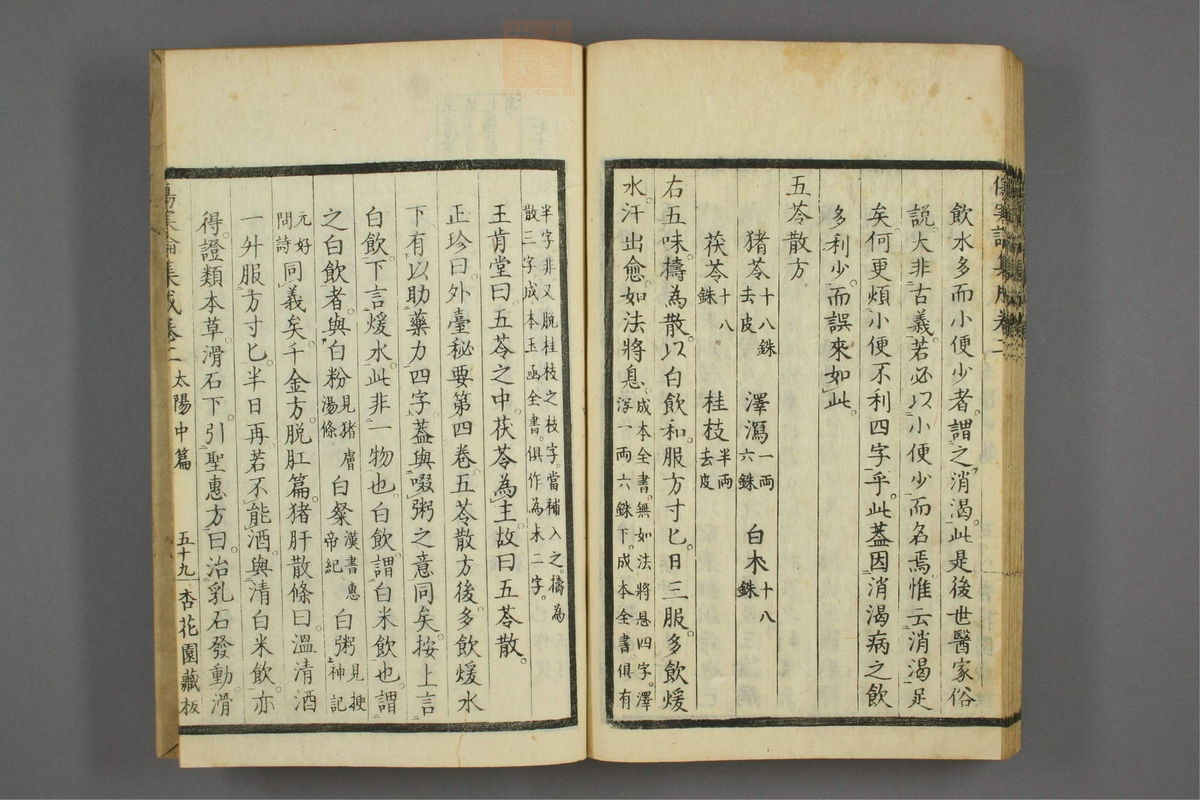 飲水多而小便少者。謂之消渴。此是後世醫家俗
說。大非古義。若必以小便少而名焉。惟云消渴足
矣。何更煩小便不利四字乎。此蓋因消渴病之飲
多利少。而誤來如此。
五苓散方
猪苓十八銖去皮 澤瀉一兩六銖 白朮十八銖
茯苓十八銖 桂枝半兩去皮
右五味。擣為散。以白飲和。服方寸匕。日三服。多飲煖
水。汗出愈。如法將息。成本全書。無如法將息四字。澤瀉一兩六銖下。成本全書。俱有
半字非。又脫桂枝之枝字。當補入之。擣為散三字。成本玉函全書。俱作為末二字。
王肯堂曰。五苓之中。茯苓為主。故曰五苓散。
正珍曰。外臺秘要第四卷。五苓散方後。多飲煖水
下。有以助藥力四字。蓋與啜粥之意同矣。按上言
白飲。下言煖水。此非一物也。白飲。謂白米飲也。謂
之白飲者。與白粉見猪膚湯條白粲漢書惠帝紀白粥見搜神記
元好問詩同義矣。千金方。脫肛篇。猪肝散條曰。溫清酒
一升。服方寸匕。半日再。若不能酒。與清白米飲亦
得。證類本草。滑石下。引聖惠方曰。治乳石發動。滑
傷寒論集成卷二 太陽中篇 五十九 杏花園藏板